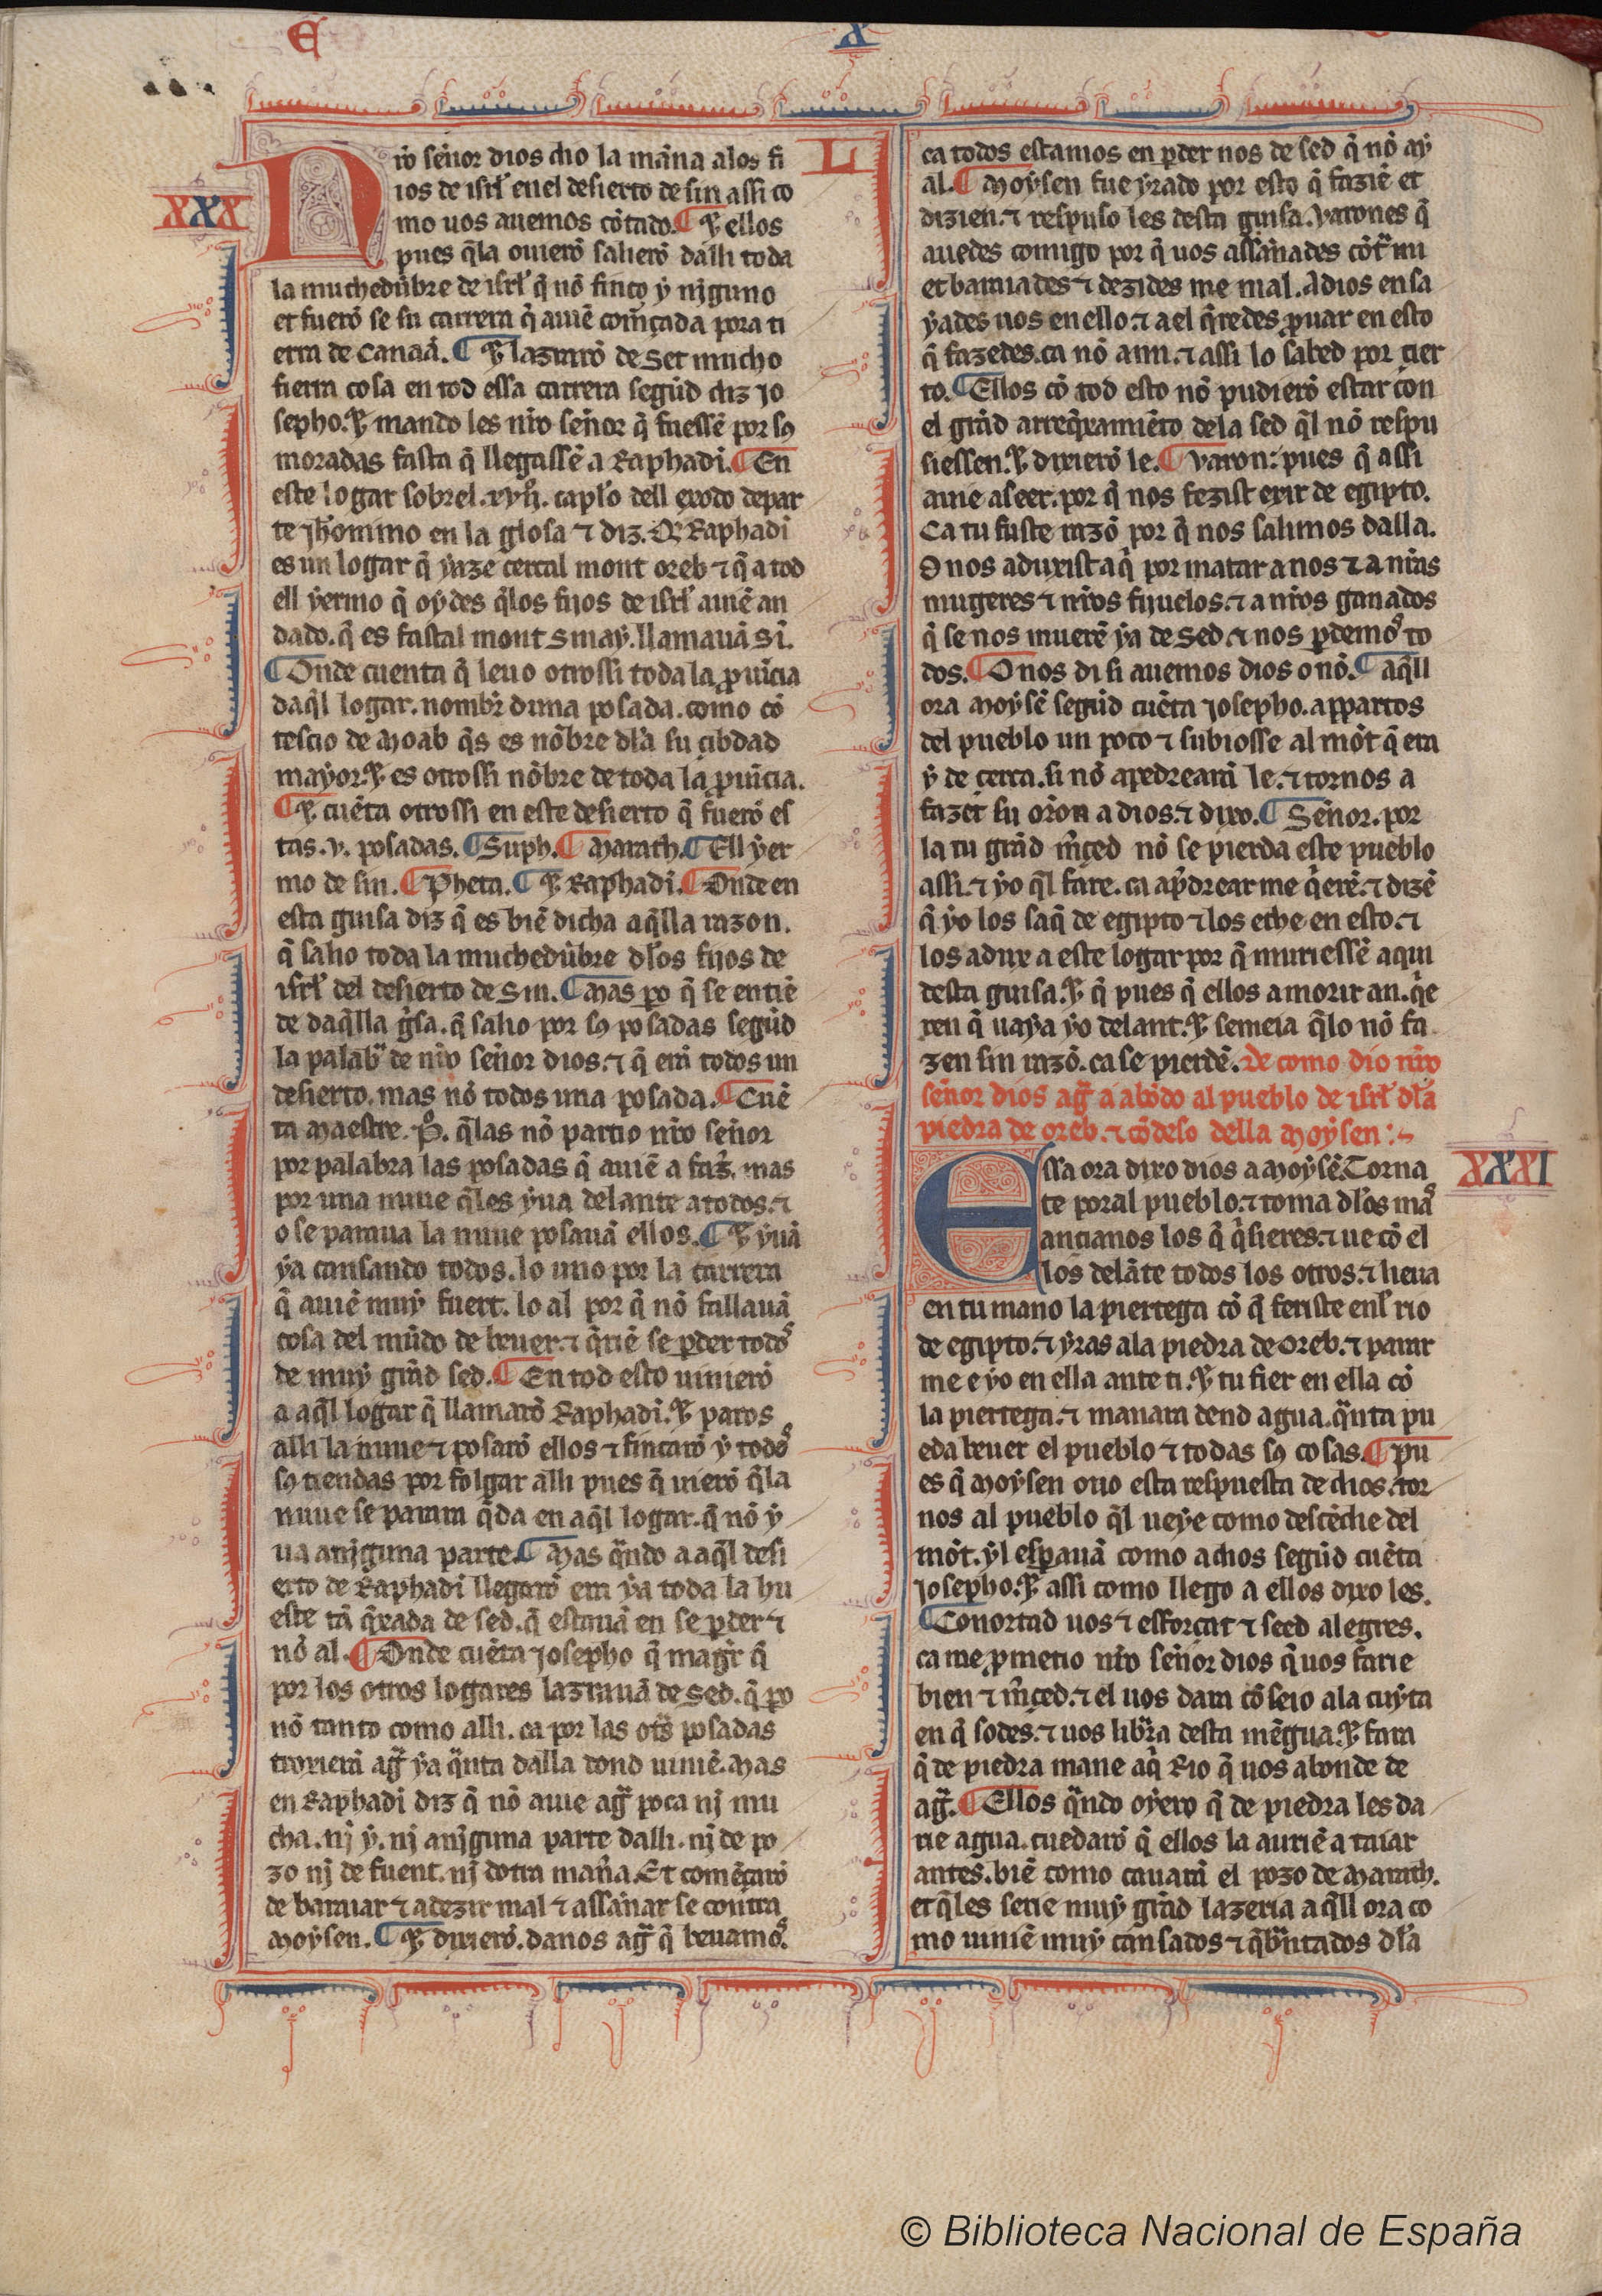 E X
XXX
Nr̄o sen̄or dios dio la mān̄a alos fi
ios de isrl̄ enel desierto de sin assi co
mo uos auemos cōtado. ¶ Et ellos
pues q̄la ouierō salierō dalli toda
la muchedūbre de isrl̄ q̄ nō finco y nj̄guno
et fuerō se su carrera q̄ auiē com̄çada pora ti
erra de Canaā. ¶ Et lazrarō de Set mucho
fiera cosa en tod essa carrera segūd diz Jo
sepho. Et mando les nr̄o sen̄or q̄ fuessē por sꝯ
moradas fasta q̄ llegassē a Raphadī. ¶ En
este logar sobrel .xvij. capl̄o dell exodo depar
te Jh̄onimo en la glosa ⁊ diz. Q̄ Raphadī
es un logar q̄ yaze cercal mont oreb ⁊ q̄ a tod
ell yermo q̄ oydes q̄los fijos de isrl̄ auiē an
dado. q̄ es fastal mont Sinay. llamauā Sī.
¶ Onde cuenta q̄ leuo otrossi toda la ꝓuīcia
daq̄l logar. nombr̄ duna posada. como cō
tescio de Moab q̄s es nōbre dl̄a su çibdad
mayor. Et es otrossi nōbre de toda la ꝓuīcia.
¶ Et cuēta otrossi en este desierto q̄ fuerō es
tas .v. posadas. ¶ Suph. ¶ Marath. ¶ Ell yer
mo de sin. ¶ Pheca. ¶ Et Raphadī. ¶ Onde en
esta guisa diz q̄ es biē dicha aq̄lla razon.
q̄ salio toda la muchedūbre dl̄os fijos de
isrl̄ del desierto de Sin. ¶ Mas ꝑo q̄ se entiē
de daq̄lla gīsa. q̄ salio por sꝯ posadas segūd
la palabr̄a de nr̄o sen̄or dios. ⁊ q̄ era todos un
desierto. mas nō todos una posada. ¶ Cuē
ta Maestre .P̄. q̄las nō partio nr̄o sen̄or
por palabra las posadas q̄ auiē a faz̄. mas
por una nuue q̄les yua delante a todos. ⁊
o se paraua la nuue posauā ellos. ¶ Et yuā
ya cansando todos. lo uno por la carrera
q̄ auiē muy fuert. lo al por q̄ nō fallauā
cosa del mūdo de beuer. ⁊ q̄riē se ꝑder todos
de muy grād sed. ¶ En tod esto uinierō
a aq̄l logar q̄ llamarō Raphadī. Et paros
alli la nuue ⁊ posarō ellos ⁊ fincarō y todos
sꝯ tiendas por folgar alli pues q̄ uierō q̄la
nuue se parara q̄da en aq̄l logar. q̄ nō y
ua anj̄guna parte. ¶ Mas q̄ndo a aq̄l desi
erto de Raphadī llegarō era ya toda la hu
este tā q̄xada de sed. q̄ estauā en se ꝑder ⁊
nō al. ¶ Onde cuēta Josepho q̄ magr̄ q̄
por los otros logares lazrauā de Sed. q̄ ꝑo
nō tanto como alli. ca por las otr̄s posadas
troxierā agū ya q̄nta dalla dond uiniē. Mas
en Raphadī diz q̄ nō auie agū poca nj mu
cha. nj y. nj anj̄guna parte dalli. nj de po
zo nj de fuent. nj dotra man̄a. Et comēçarō
de baraiar ⁊ a dezir mal ⁊ assan̄ar se contra
Moysen. ¶ Et dixierō. danos agū q̄ beuamos.
L
ca todos estamos en ꝑder nos de sed q̄ nō ay
al. ¶ Moysen fue yrado por esto q̄ faziē et
dizien. ⁊ respuso les desta guisa. Varones q̄
auedes comigo por q̄ uos assan̄ades cōtr̄ mi
et baraiades ⁊ dezides me mal. A dios ensa
yades uos en ello. ⁊ a el q̄redes ꝓuar en esto
q̄ fazedes. ca nō a mi. ⁊ assi lo sabed por cier
to. ¶ Ellos cō tod esto nō pudierō estar con
el grād arreq̄xamiēto dela sed q̄l nō respu
siessen. Et dixierō le. ¶ Varon: pues q̄ assi
auie a seer. por q̄ nos fezist exir de egipto.
Ca tu fuste razō por q̄ nos saliemos dalla.
O nos aduxist aq̄ por matar a nos ⁊ a nr̄as
mugeres ⁊ nr̄os fijuelos. ⁊ a nr̄os ganados
q̄ se nos muerē ya de Sed. ⁊ nos ꝑdemos to
dos. ¶ O nos di si auemos dios o nō. ¶ Aq̄ll
ora Moysē segūd cuēta Josepho. appartos
del pueblo un poco ⁊ subiosse al mōt q̄ era
y de cerca. si nō apedreara le. ⁊ tornos a
fazer su orōn a dios. ⁊ dixo. ¶ Sen̄or. por
la tu grād m̄çed nō se pierda este pueblo
assi. ⁊ yo q̄l fare. ca ap̄drear me q̄erē. ⁊ dizē
q̄ yo los saq̄ de egipto ⁊ los eche en esto. ⁊
los adux a este logar por q̄ muriessē aqui
desta guisa. Et q̄ pues q̄ ellos a morir an. q̄e
ren q̄ uaya yo delant. Et semeia q̄lo nō fa
zen sin razō. ca se pierdē. De como dio nr̄o
sen̄or dios agū a abōdo al pueblo de isrl̄ dl̄a
piedra de oreb. ⁊ cōdeso della Moysen:
XXXI
Essa ora dixo dios a Moysē. Torna
te poral pueblo. ⁊ toma dl̄os mas
ancianos los q̄ q̄sieres. ⁊ ue cō el
los delāte todos los otros. ⁊ lieua
en tu mano la piertega cō q̄ feriste enl̄ rio
de egipto. ⁊ yras ala piedra de Oreb. ⁊ parar
me e yo en ella ante ti. Et tu fier en ella cō
la piertega. ⁊ manara dend agua. q̄nta pu
eda beuer el pueblo ⁊ todas sꝯ cosas. ¶ Pu
es q̄ Moysen ouo esta respuesta de dios. tor
nos al pueblo q̄l ueye como descēdie del
mōt. yl esperauā como a dios segūd cuēta
Josepho. Et assi como llego a ellos dixo les.
¶ Conortad uos ⁊ esforçat ⁊ seed alegres.
ca me ꝓmetio nr̄o sen̄or dios q̄ uos farie
bien ⁊ m̄çed. ⁊ el uos dara cōseio ala cuyta
en q̄ sodes. ⁊ uos libr̄ra desta mēgua. Et fara
q̄ de piedra mane aq̄ Rio q̄ uos abonde de
agū. ¶ Ellos q̄ndo oyero q̄ de piedra les da
rie agua. cuedarō q̄ ellos la auriē a taiar
antes. biē como cauarā el pozo de Marath.
et q̄les serie muy grād lazeria a q̄ll ora co
mo uiniē muy cansados ⁊ q̄br̄ntados dl̄a
© Biblioteca Nacional de España